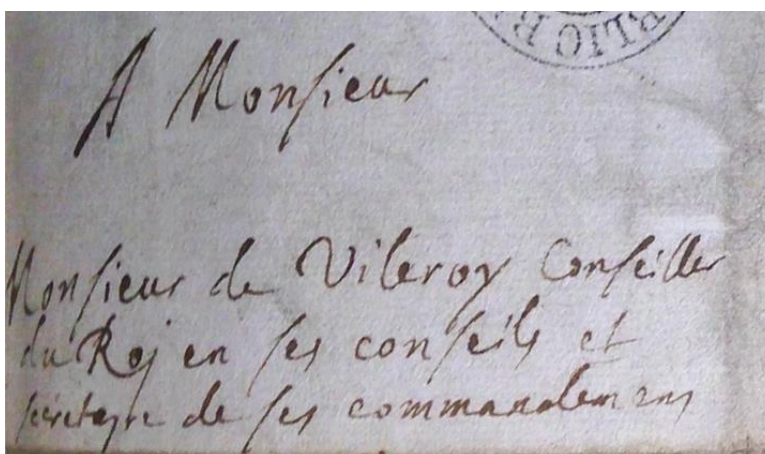 BLIC R
A Monsieur
Monsieur de Vileroy Conseiller
du Roj en ses conseils et
secretayre de ses commandemens